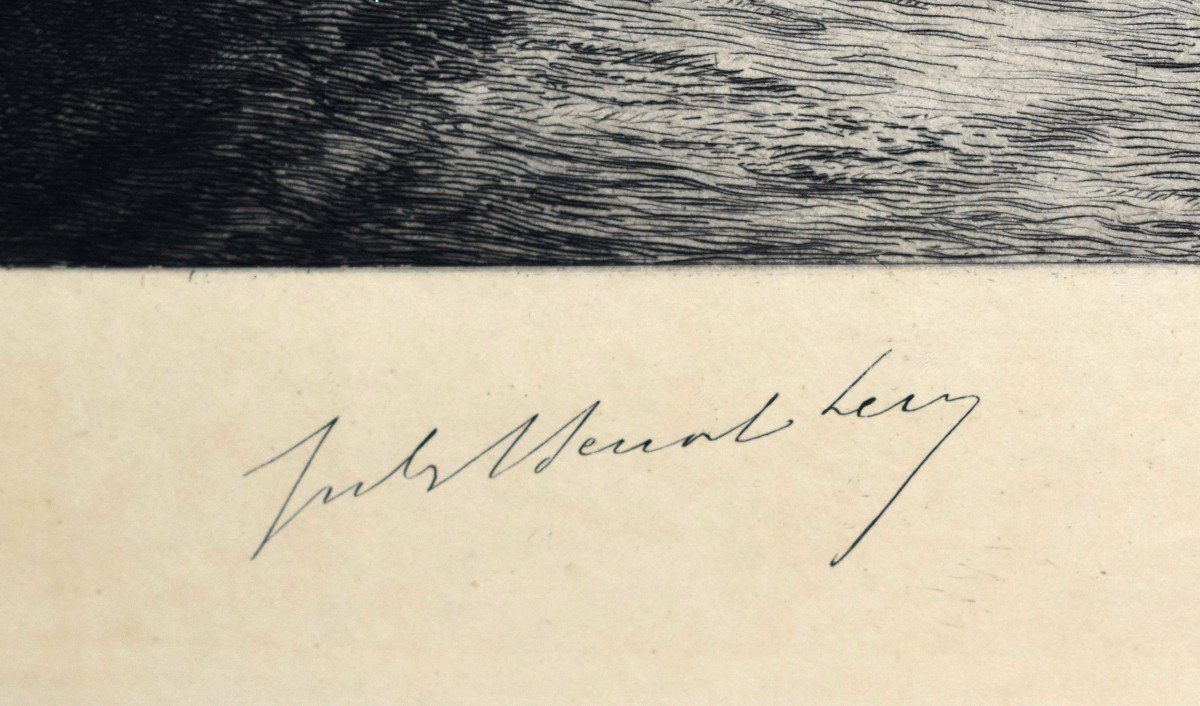 Jules Benoit Levy